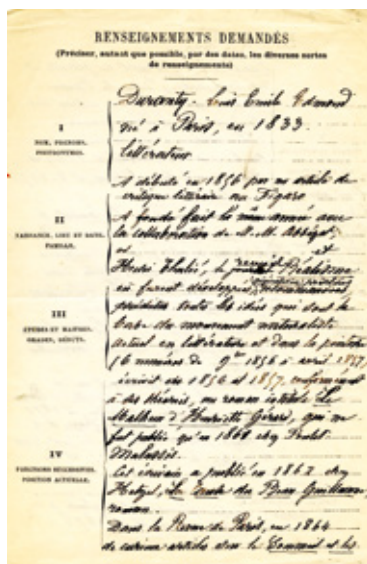 RENSEIGNEMENTS DEMANDÉS
(Préciser, autant que possible, par des dates, les diverses sortes
de renseignements)
I
NOM, PRÉNOMS,
II
NAISSANCE, LIEU ET DATE,
FAMILLE.
III
ÉTUDES ET MAITRES,
GRADES, DÉBUTS.
IV
FONCTIONS SUCCESSIVES,
POSITION ACTUELLE.
Duranty - Louis Emile Edmond
né à Paris, en 1833.
littérateur
A débuté en 1856 par un article de
critique littéraire au Figaro
A fondé la même année avec
la collaboration de M.M. Assézat
et
Henri Thulié, le journal Réalisme
où furent développées
toutes les idées qui sont la
base du mouvement naturaliste
actuel en littérature et dans la peinture
(6 numéros de 9bre 1856 à avril 1857,
écrivit en 1856 et 1857, conformément
à ses théories, un roman intitulé Le
Malheur d'Henriette Gérard, qui ne
fut publié qu'en 1860 chez Poulet-
Malassis.
Cet écrivain a publié en 1862 chez
Hetzel, la Cause du Beau Guillaume,
roman.
Dans la Revue de Paris, en 1864
de curieux articles sur le et les